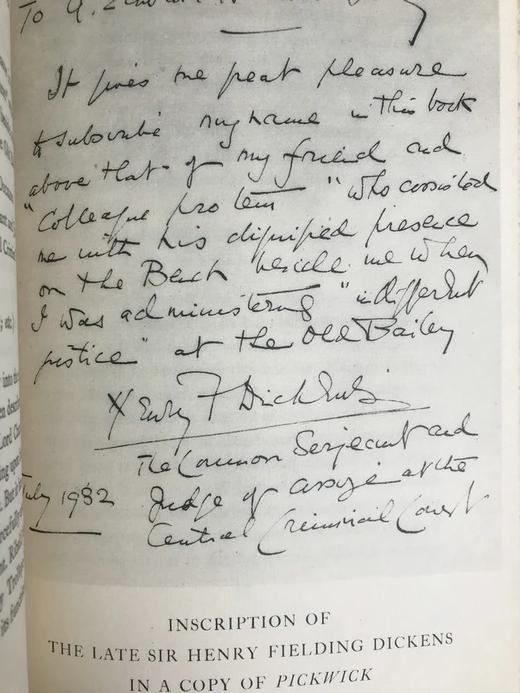 To
It gives me great pleasure
to subscribe my name in this book
above that of my friend and
"Colleague pro tem" who assisted
me with his dignified presence
on the Bench beside me when
I was administering "indifferent
justice" at the Old Bailey
Henry F Dickens
The Common Serjeant and
July 1932 Judge of assize at the
Central Criminal Court
INSCRIPTION OF
THE LATE SIR HENRY FIELDING DICKENS
IN A COPY OF PICKWICK